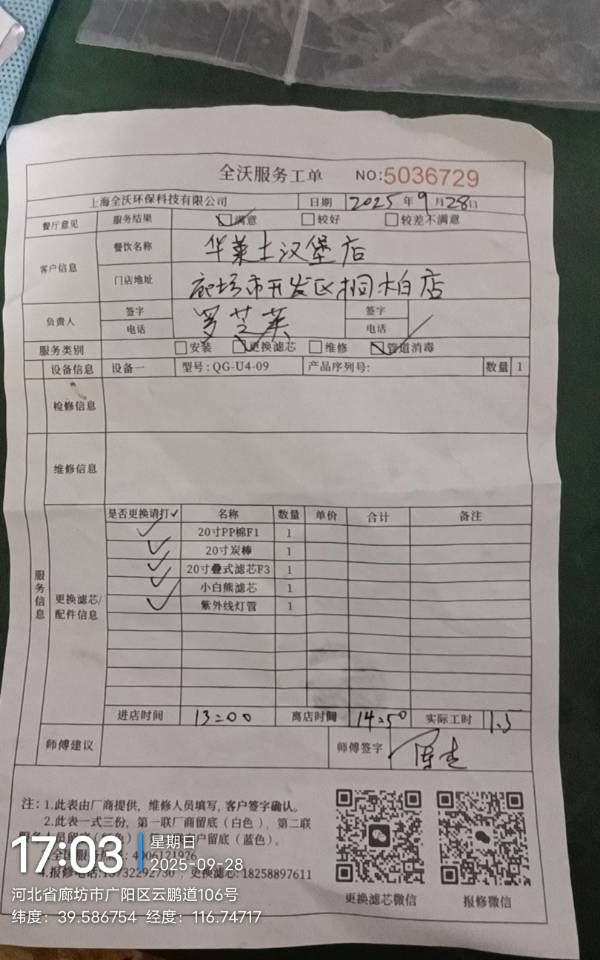 全沃服务工单 NO:5036729
上海全沃环保科技有限公司 日期 2025 年 9 月 28 日
餐厅意见 服务结果 满意 较好 较差不满意
客户信息 餐饮名称 华莱士汉堡店
门店地址 廊坊市开发区桐柏店
负责人 签字 罗芝英 签字
电话 电话
服务类别 安装 更换滤芯 维修 管道消毒
设备信息 设备一 型号:QG-U4-09 产品序列号: 数量 1
检修信息
维修信息
服务信息
更换滤芯/配件信息
是否更换请打✓ 名称 数量 单价 合计 备注
✓ 20寸PP棉F1 1
✓ 20寸炭棒 1
✓ 20寸叠式滤芯F3 1
✓ 小白熊滤芯 1
✓ 紫外线灯管 1
进店时间 13:00 离店时间 14:50 实际工时 1.5
师傅建议 师傅签字
注:1.此表由厂商提供,维修人员填写,客户签字确认。
2.此表一式三份,第一联厂商留底(白色),第二联
户留底(蓝色)。
更换滤芯:18258897611
更换滤芯微信 报修微信
17:03 星期日
2025-09-28
河北省廊坊市广阳区云鹏道106号
纬度:39.586754 经度:116.74717